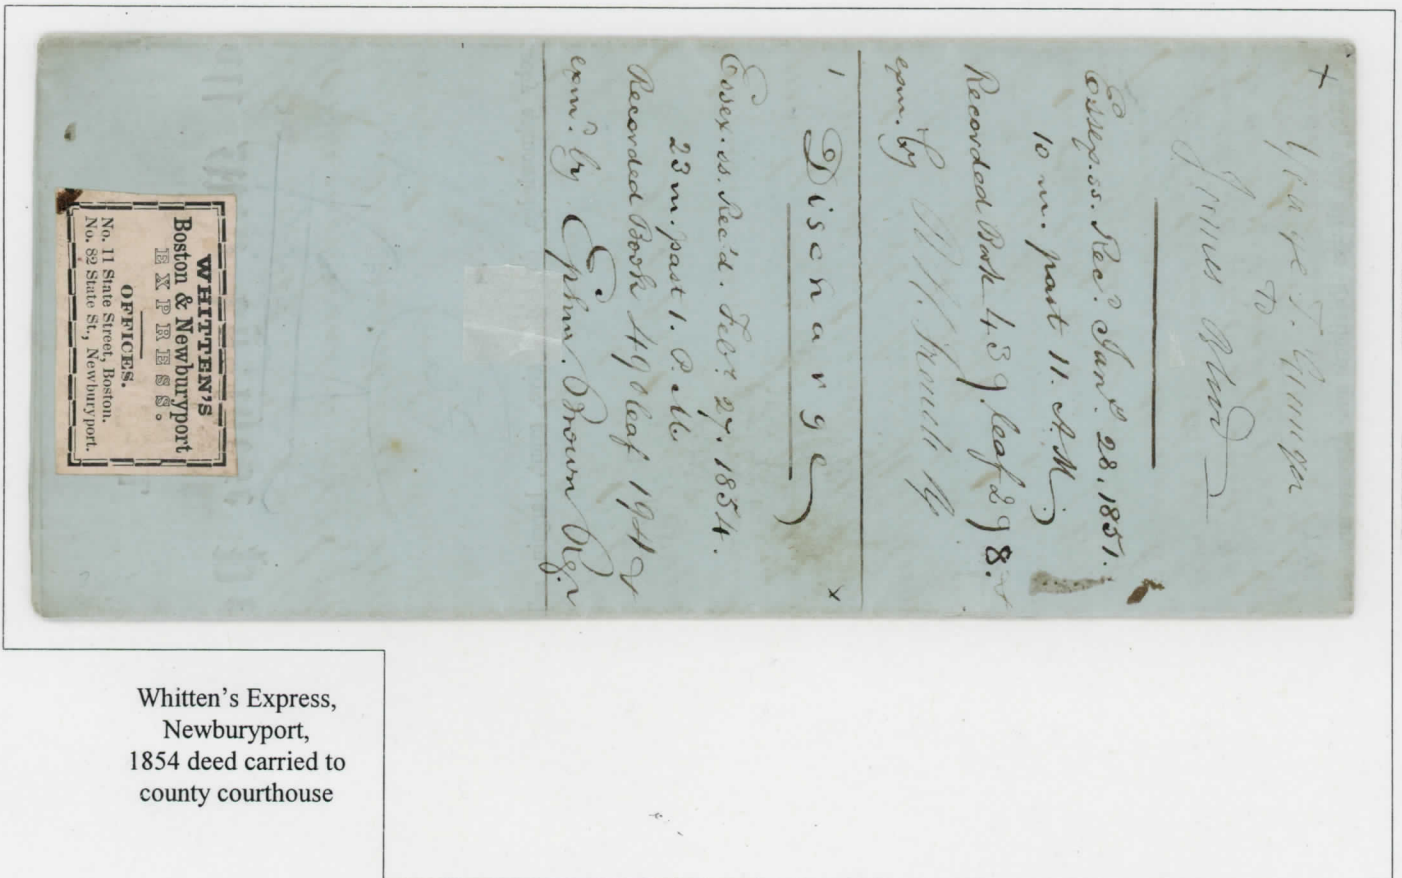 +
George T. Granger
To
James Blood
Essex. ss. Rec.d Jan.y 28. 1851.
10 m. past 11. A. M.
Recorded Book 439. leaf 298.
exm.d by
Discharge
x
Essex. ss. Rec'd. Feb.y 27. 1854.
23 m. past 1. P. M.
Recorded Book 490 leaf 194 &
exm.d by Ephm. Brown Regr
WHITTEN'S
Boston & Newburyport
EXPRESS.
OFFICES.
No. 11 State Street, Boston.
No. 82 State St., Newburyport.
Whitten's Express,
Newburyport,
1854 deed carried to
county courthouse